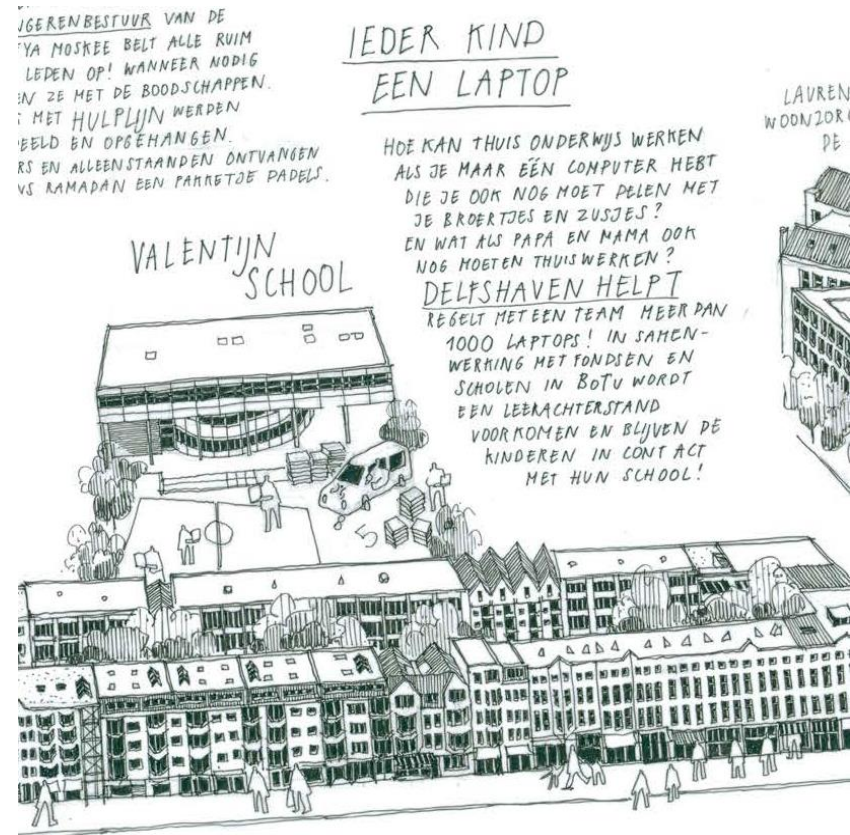 JGERENBESTUUR VAN DE
YA MOSKEE BELT ALLE RUIM
LEDEN OP! WANNEER NODIG
EN ZE MET DE BOODSCHAPPEN.
MET HULPLIJN WERDEN
EELD EN OPGEHANGEN.
RS EN ALLEENSTAANDEN ONTVANGEN
NS RAMADAN EEN PAKKETJE DADELS.
IEDER KIND
EEN LAPTOP
HOE KAN THUIS ONDERWIJS WERKEN
ALS JE MAAR ÉÉN COMPUTER HEBT
DIE JE OOK NOG MOET DELEN MET
JE BROERTJES EN ZUSJES?
EN WAT ALS PAPA EN MAMA OOK
NOG MOETEN THUISWERKEN?
DELFSHAVEN HELPT
REGELT MET EEN TEAM MEER DAN
1000 LAPTOPS! IN SAMEN-
WERKING MET FONDSEN EN
SCHOLEN IN BOTU WORDT
EEN LEERACHTERSTAND
VOORKOMEN EN BLIJVEN DE
KINDEREN IN CONTACT
MET HUN SCHOOL!
VALENTIJN
SCHOOL
LAUREN
WOONZORG
DE
5